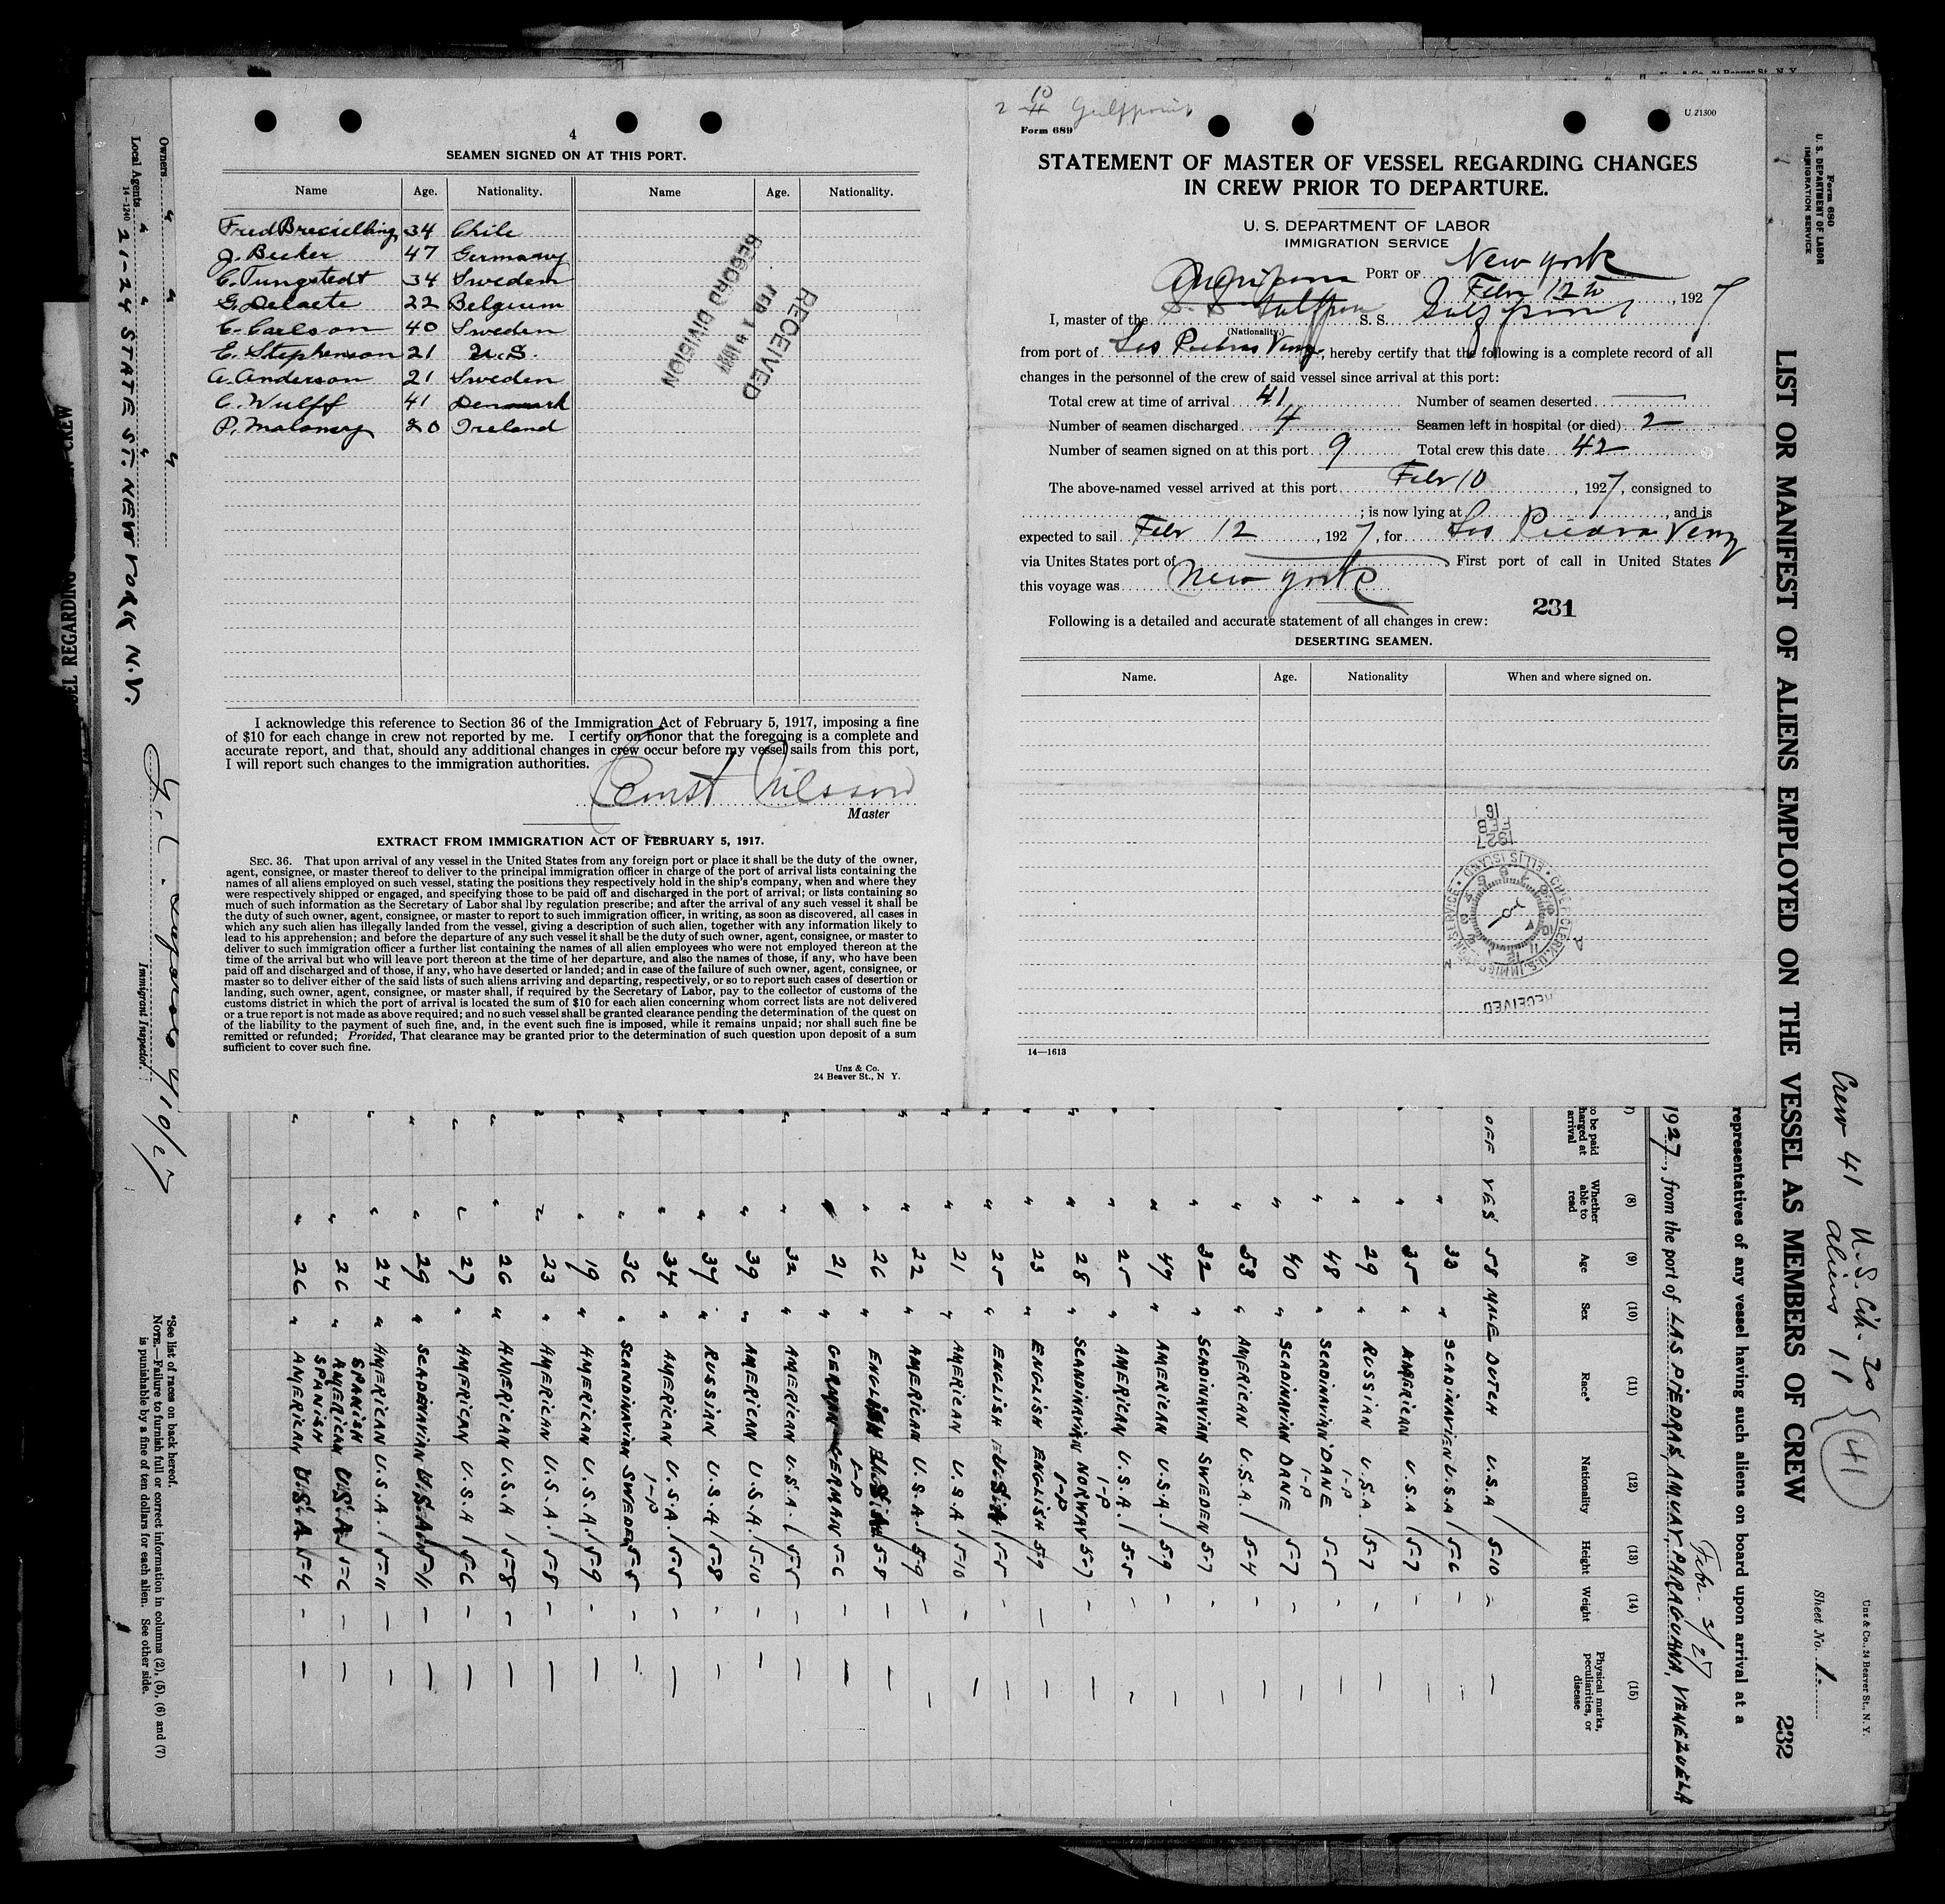 4
SEAMEN SIGNED ON AT THIS PORT.
Name Age. Nationality. Name Age. Nationality.
Fred 34 Chile
J. Becker 47 Germany
C. Tungstedt 34 Sweden
G. Delaete 22 Belgium
C. Carlson 40 Sweden
E. Stephenson 21 U.S.
A. Anderson 21 Sweden
C. Wulff 41 Denmark
P. Maloney 20 Ireland
RECEIVED
FEB 19 1927
RECORD DIVISION
I acknowledge this reference to Section 36 of the Immigration Act of February 5, 1917, imposing a fine
of $10 for each change in crew not reported by me. I certify on honor that the foregoing is a complete and
accurate report, and that, should any additional changes in crew occur before my vessel sails from this port,
I will report such changes to the immigration authorities.
Ernst Nilsson
Master
EXTRACT FROM IMMIGRATION ACT OF FEBRUARY 5, 1917.
SEC. 36. That upon arrival of any vessel in the United States from any foreign port or place it shall be the duty of the owner,
agent, consignee, or master thereof to deliver to the principal immigration officer in charge of the port of arrival lists containing the
names of all aliens employed on such vessel, stating the positions they respectively hold in the ship's company, when and where they
were respectively shipped or engaged, and specifying those to be paid off and discharged in the port of arrival; or lists containing so
much of such information as the Secretary of Labor shal lby regulation prescribe; and after the arrival of any such vessel it shall be
the duty of such owner, agent, consignee, or master to report to such immigration officer, in writing, as soon as discovered, all cases in
which any such alien has illegally landed from the vessel, giving a description of such alien, together with any information likely to
lead to his apprehension; and before the departure of any such vessel it shall be the duty of such owner, agent, consignee, or master to
deliver to such immigration officer a further list containing the names of all alien employees who were not employed thereon at the
time of the arrival but who will leave port thereon at the time of her departure, and also the names of those, if any, who have been
paid off and discharged and of those, if any, who have deserted or landed; and in case of the failure of such owner, agent, consignee, or
master so to deliver either of the said lists of such aliens arriving and departing, respectively, or so to report such cases of desertion or
landing, such owner, agent, consignee, or master shall, if required by the Secretary of Labor, pay to the collector of customs of the
customs district in which the port of arrival is located the sum of $10 for each alien concerning whom correct lists are not delivered
or a true report is not made as above required; and no such vessel shall be granted clearance pending the determination of the quest on
of the liability to the payment of such fine, and, in the event such fine is imposed, while it remains unpaid; nor shall such fine be
remitted or refunded; Provided, That clearance may be granted prior to the determination of such question upon deposit of a sum
sufficient to cover such fine.
Unz & Co.
24 Beaver St., N Y.
2 10 Gulfpoint
Form 689
U 21300
STATEMENT OF MASTER OF VESSEL REGARDING CHANGES
IN CREW PRIOR TO DEPARTURE.
U. S. DEPARTMENT OF LABOR
IMMIGRATION SERVICE
PORT OF New York
Febr 12th, 1927
I, master of the S. S. Gulfpoint
(Nationality.)
from port of Las Piedras Venz, hereby certify that the following is a complete record of all
changes in the personnel of the crew of said vessel since arrival at this port:
Total crew at time of arrival 41 Number of seamen deserted —
Number of seamen discharged 4 Seamen left in hospital (or died) 2
Number of seamen signed on at this port 9 Total crew this date 42
The above-named vessel arrived at this port Febr 10, 1927, consigned to
; is now lying at , and is
expected to sail Febr 12, 1927, for Las Piedras Venz
via Unites States port of First port of call in United States
this voyage was New York
231
Following is a detailed and accurate statement of all changes in crew:
DESERTING SEAMEN.
Name. Age. Nationality When and where signed on.
1927
FEB
16
CHIEF CLERK, U.S. IMMIGRATION SERVICE · ELLIS ISLAND
RECEIVED
14—1613
Form 680
U. S. DEPARTMENT OF LABOR
IMMIGRATION SERVICE
LIST OR MANIFEST OF ALIENS EMPLOYED ON THE VESSEL AS MEMBERS OF CREW
Crew 41
U.S. Cit. 20
Aliens 11
41
Sheet No. 1
Unz & Co., 24 Beaver St., N. Y.
232
representatives of any vessel having such aliens on board upon arrival at a
Febr. 3/27
1927, from the port of LAS PIEDRAS, AMUAY, PARAGUANA, VENEZUELA
to be paid
charged at
arrival
(8) Whether able to read
(9) Age
(10) Sex
(11) Race*
(12) Nationality
(13) Height
(14) Weight
(15) Physical marks, peculiarities, or disease
OFF YES 58 MALE DUTCH U.S.A 5-10 – –
" 33 " SCANDINAVIEN U.S.A 5-6 – –
" 35 " AMERICAN U.S.A 5-7 – –
" 29 " RUSSIAN U.S.A 5-7 – –
" 48 " SCADINAVIAN DANE 5-5 – –
" 40 " SCADINAVIAN DANE 5-7 – –
" 53 " AMERICAN U.S.A. 5-4 – –
" 32 " SCADINAVIAN SWEDEN 5-7 – –
" 47 " AMERICAN U.S.A. 5-9 – –
" 25 " AMERICAN U.S.A. 5-5 – –
" 28 " SCANDINAVIAN NORWAY 5-7 – –
" 23 " ENGLISH ENGLISH 5-9 – –
" 25 " ENGLISH U.S.A 5-5 – –
" 21 " AMERICAN U.S.A 5-10 – –
" 22 " AMERICAN U.S.A. 5-9 – –
" 26 " ENGLISH 5-8 – –
" 21 " GERMAN GERMAN 5-6 – –
" 32 " AMERICAN U.S.A. 5-5 – –
" 39 " AMERICAN U.S.A. 5-10 – –
" 37 " RUSSIAN U.S.A 5-8 – –
" 34 " AMERICAN U.S.A. 5-5 – –
" 36 " SCANDINAVIAN SWEDEN 5-5 – –
" 19 " AMERICAN U.S.A. 5-9 – –
" 23 " AMERICAN U.S.A. 5-8 – –
" 26 " AMERICAN U.S.A 5-8 – –
" 27 " AMERICAN U.S.A 5-6 – –
" 29 " SCADINAVIAN U.S.A. 5-11 – –
" 24 " AMERICAN U.S.A. 5-11 – –
" 26 " SPANISH AMERICAN U.S.A. 5-6 – –
" 26 " SPANISH AMERICAN U.S.A. 5-4 – –
*See list of races on back hereof.
NOTE.—Failure to furnish full or correct information in columns (2), (5), (6) and (7)
is punishable by a fine of ten dollars for each alien. See other side.
Owners
Local Agents
14-1240
21-24 STATE ST. NEW YORK N.Y.
2/10/27
Immigrant Inspector.